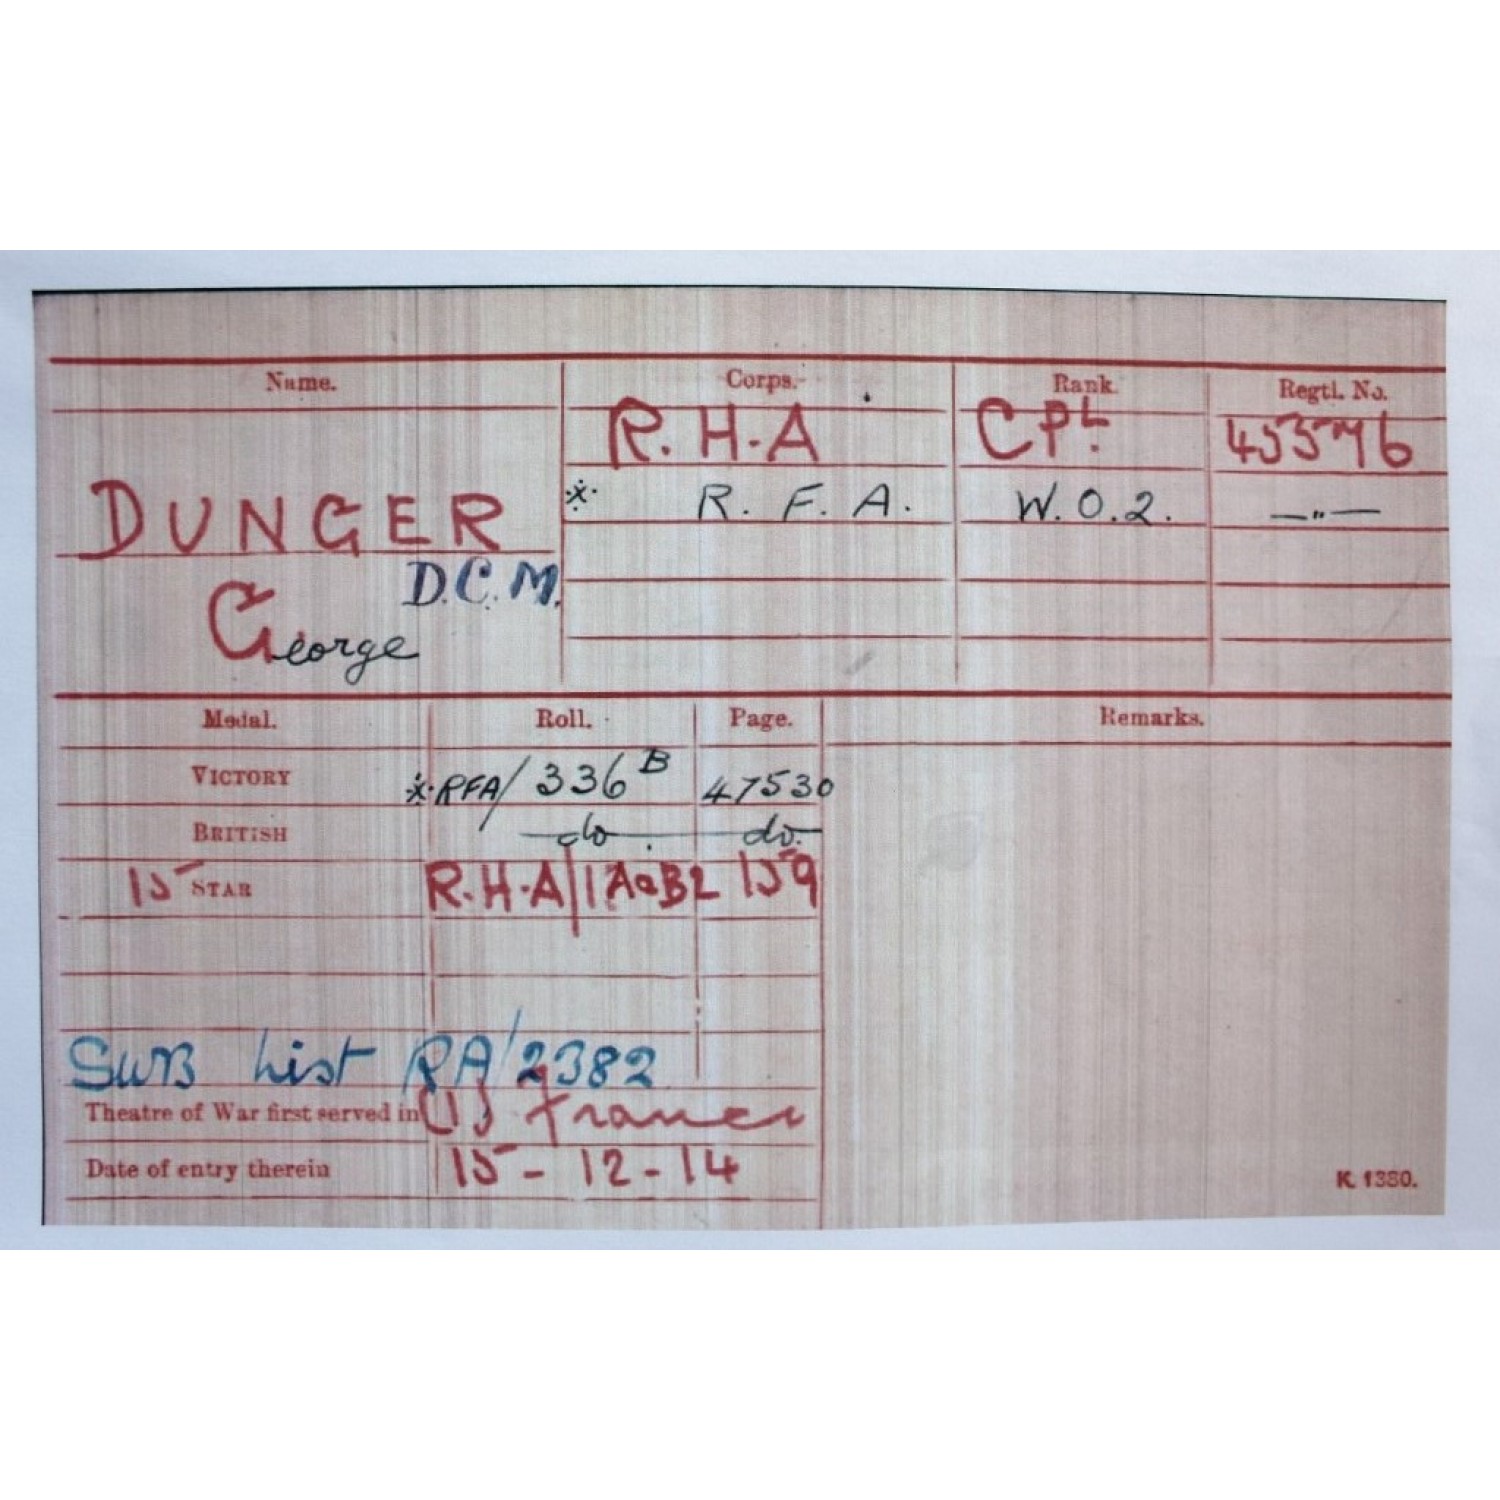 Name. Corps. Rank. Regtl. No.
R.H.A CPL.
DUNGER * R. F. A. W.O.2. —"—
D.C.M.
George
Medal. Roll. Page. Remarks.
VICTORY * RFA/336 B 47530
BRITISH do. do.
15 STAR R.H.A/1A&B2 159
SWB List RA/2382
Theatre of War first served in (1) France
Date of entry therein 15-12-14
K. 1380.